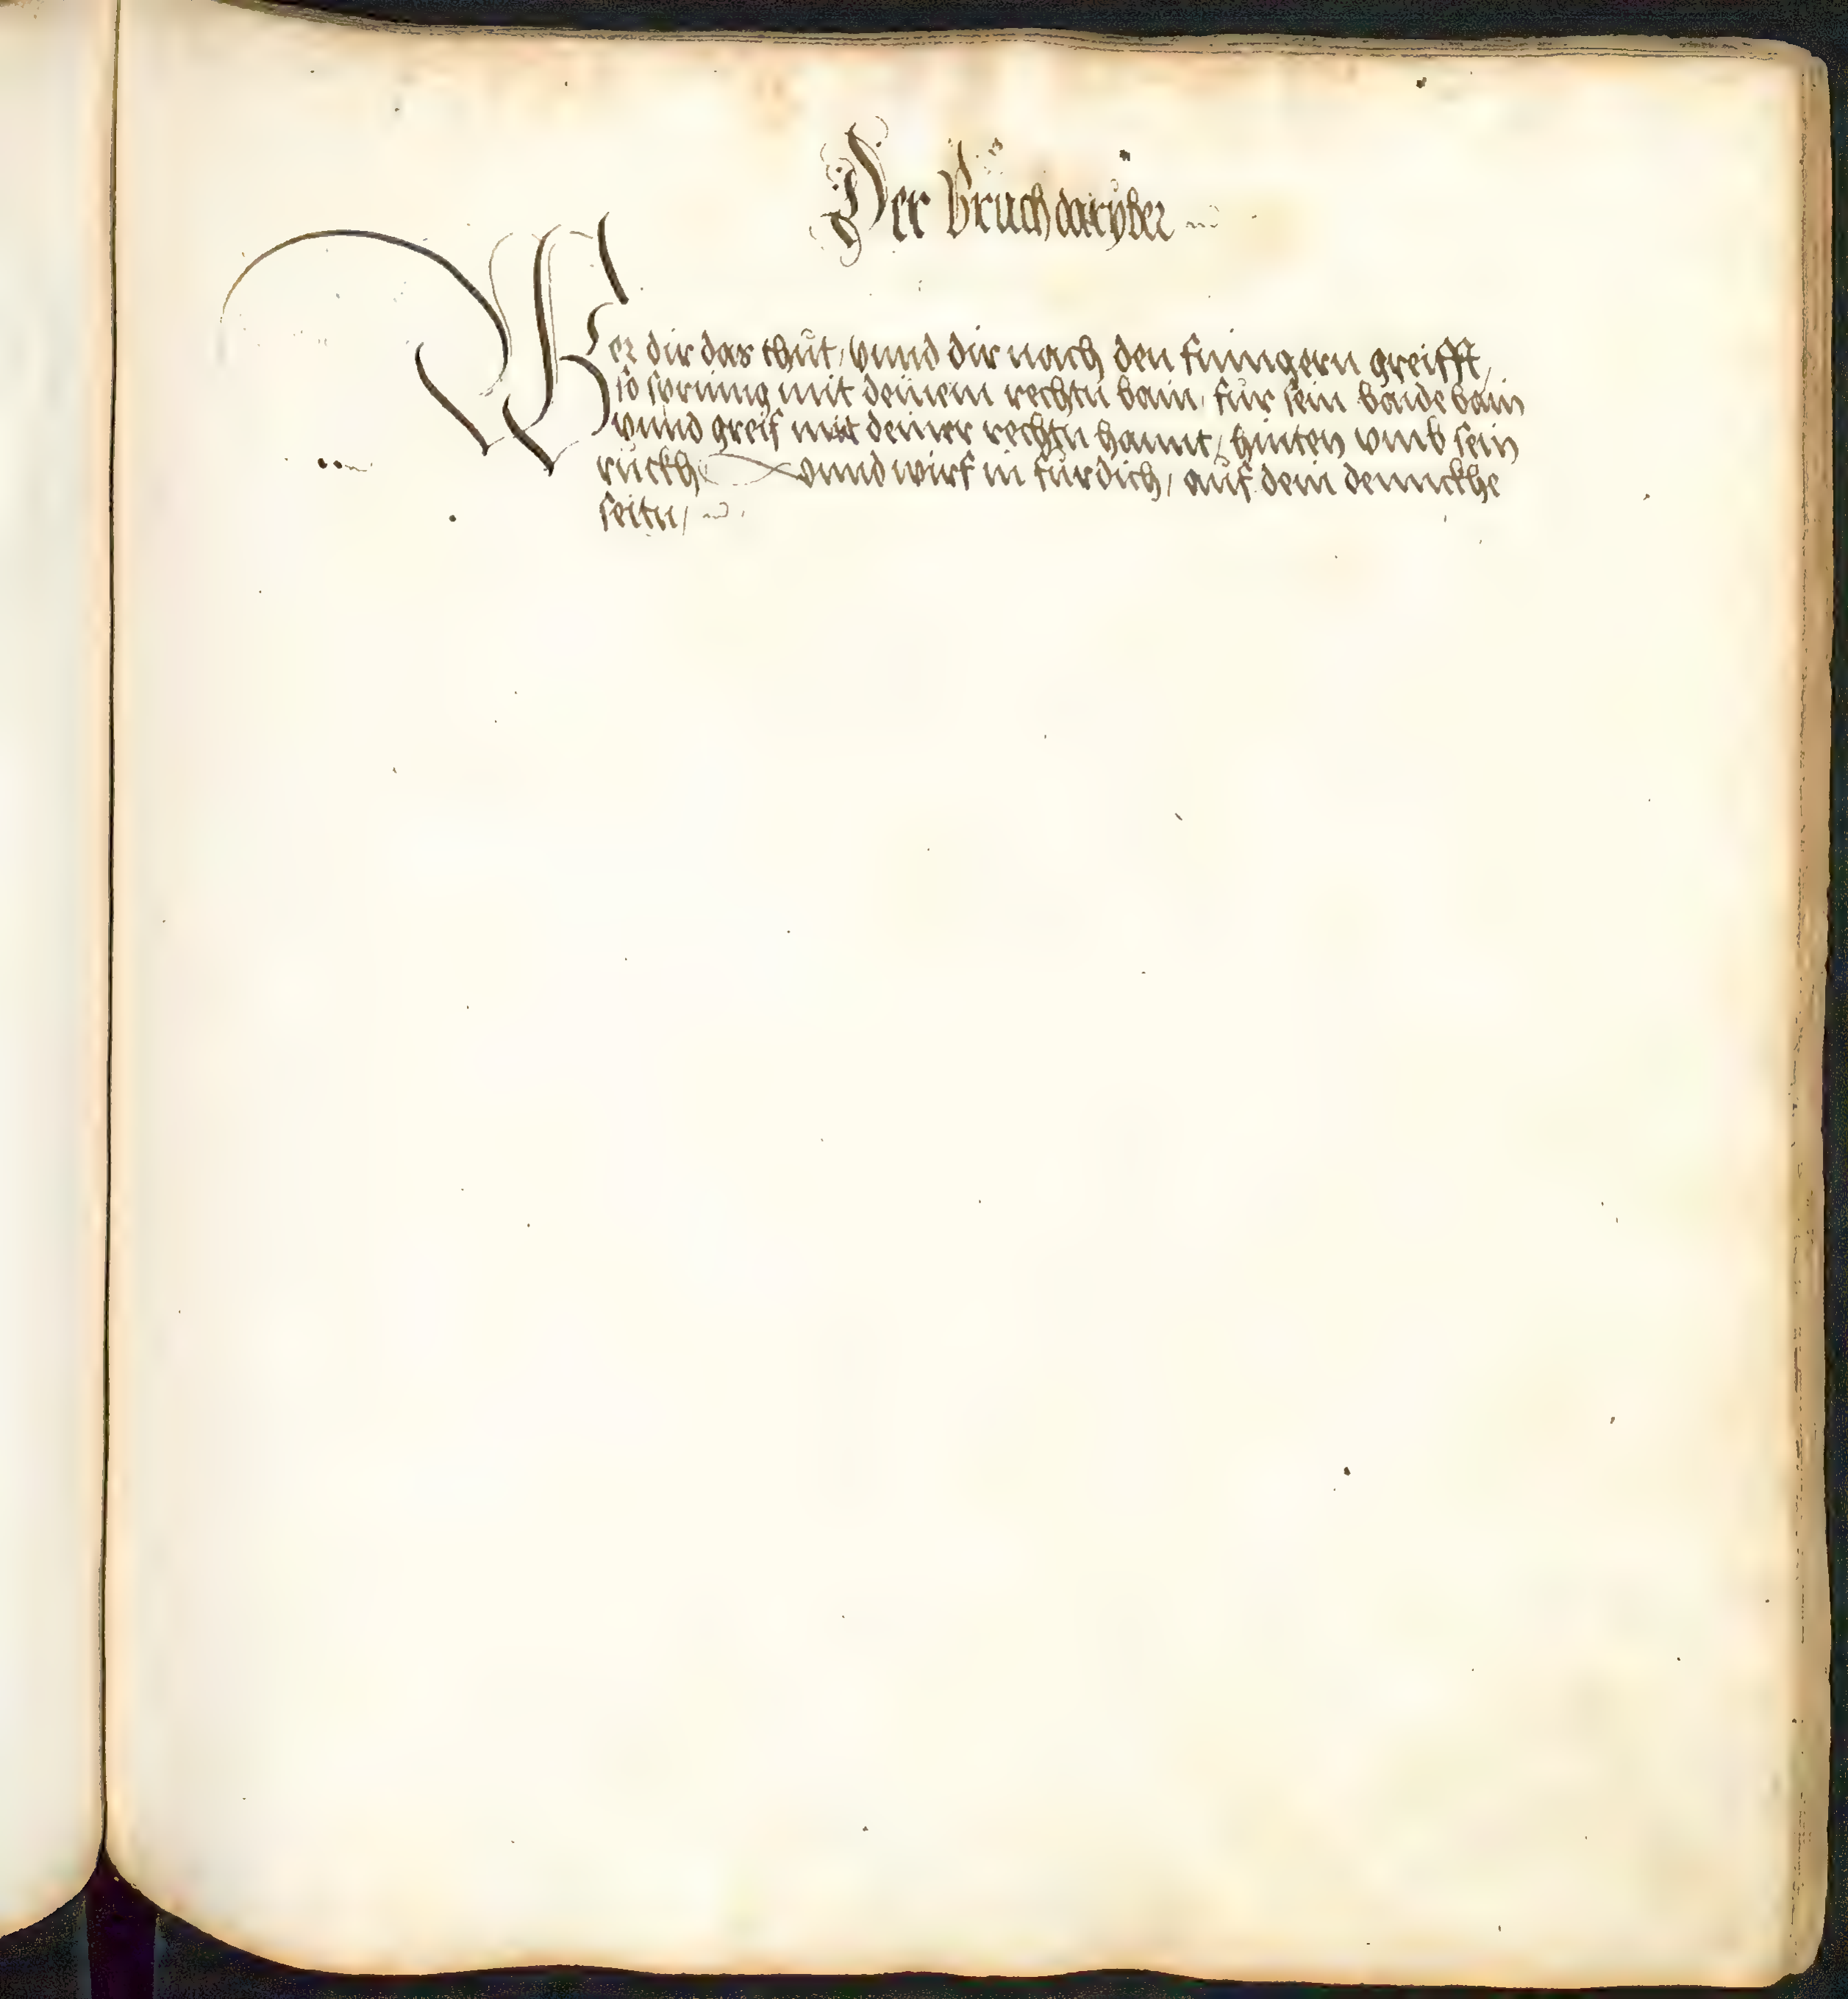 Der Bruch daryber
Wer dir das thut, vnnd dir nach den finngern greifft,
so sprinng mit deinem rechtn bain, für sein baide bain
vnnd greif mit deiner rechtn hannt, hinten vmb sein
ruckh vnnd wirf in für dich, auf dein dennckhe
seitn,